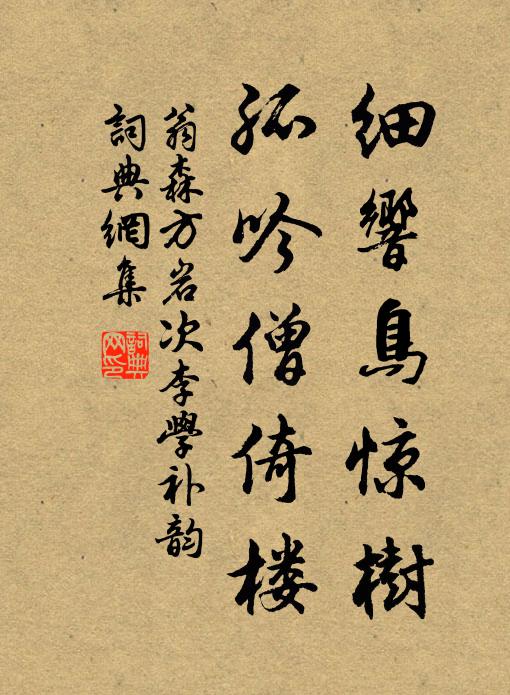 细響鳥惊樹
孤吟僧倚楼
翁森方岩次李學补韵
詞典網集
詞典網印